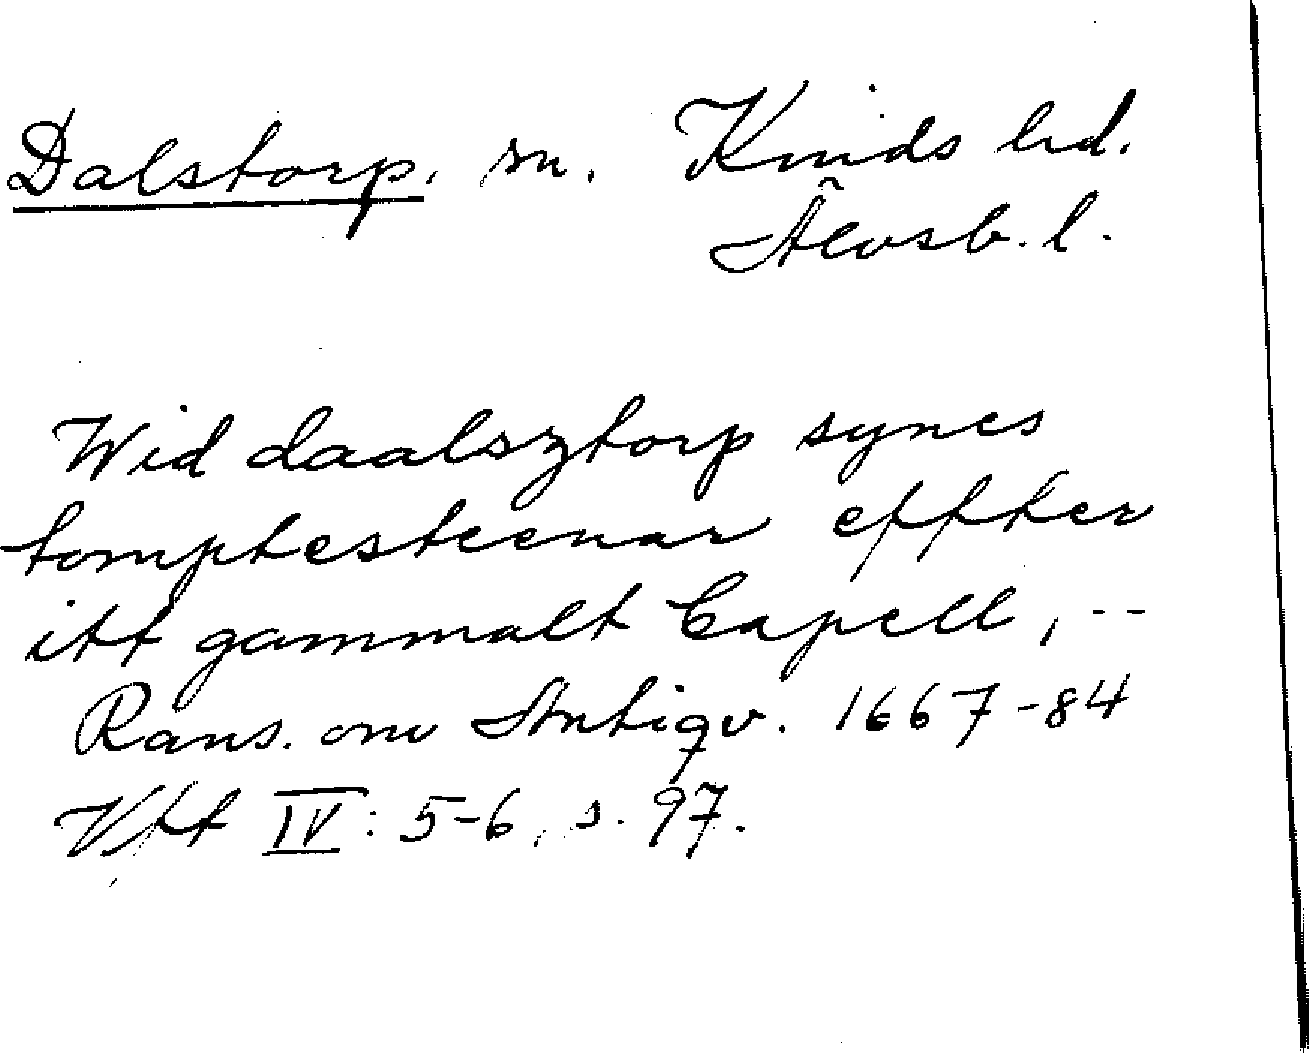 Dalstorp, sn. Kinds hd.
Älvsb. l.
Wid daalsztorp synes
tomptesteenar effter
itt gammalt Capell, --
Rans. om Antiqv. 1667-84
Vft IV: 5-6, s. 97.